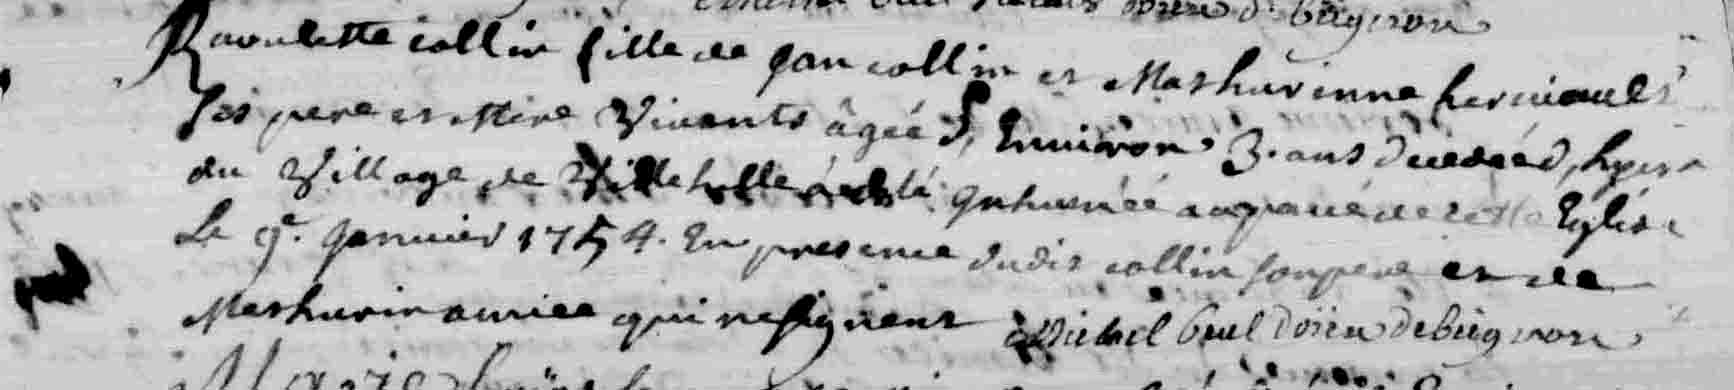 doien de bignon
Raoulette collin fille de Jan collin et Mathurinne
Ses pere et Mere Vivants âgée d'Environ 3. ans decedée d'hyer
du Village de a été Inhumée au pavé de cette Eglise
Le 9e. Janvier 1754. En presence dudit collin son pere et de
Mathurin qui ne signent Michel Buel doien de bignon